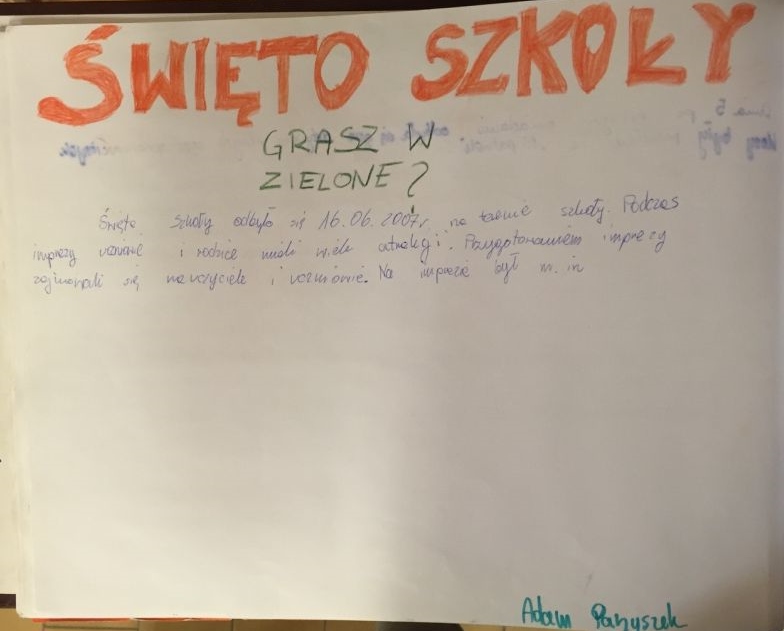 ŚWIĘTO SZKOŁY
GRASZ W
ZIELONE?
Święto szkoły odbyło się 16.06.2007r. na terenie szkoły. Podczas
imprezy uczniowie i rodzice mieli wiele atrakcji. Przygotowaniem imprezy
zajmowali się nauczyciele i uczniowie. Na imprezie był m. in
Adam